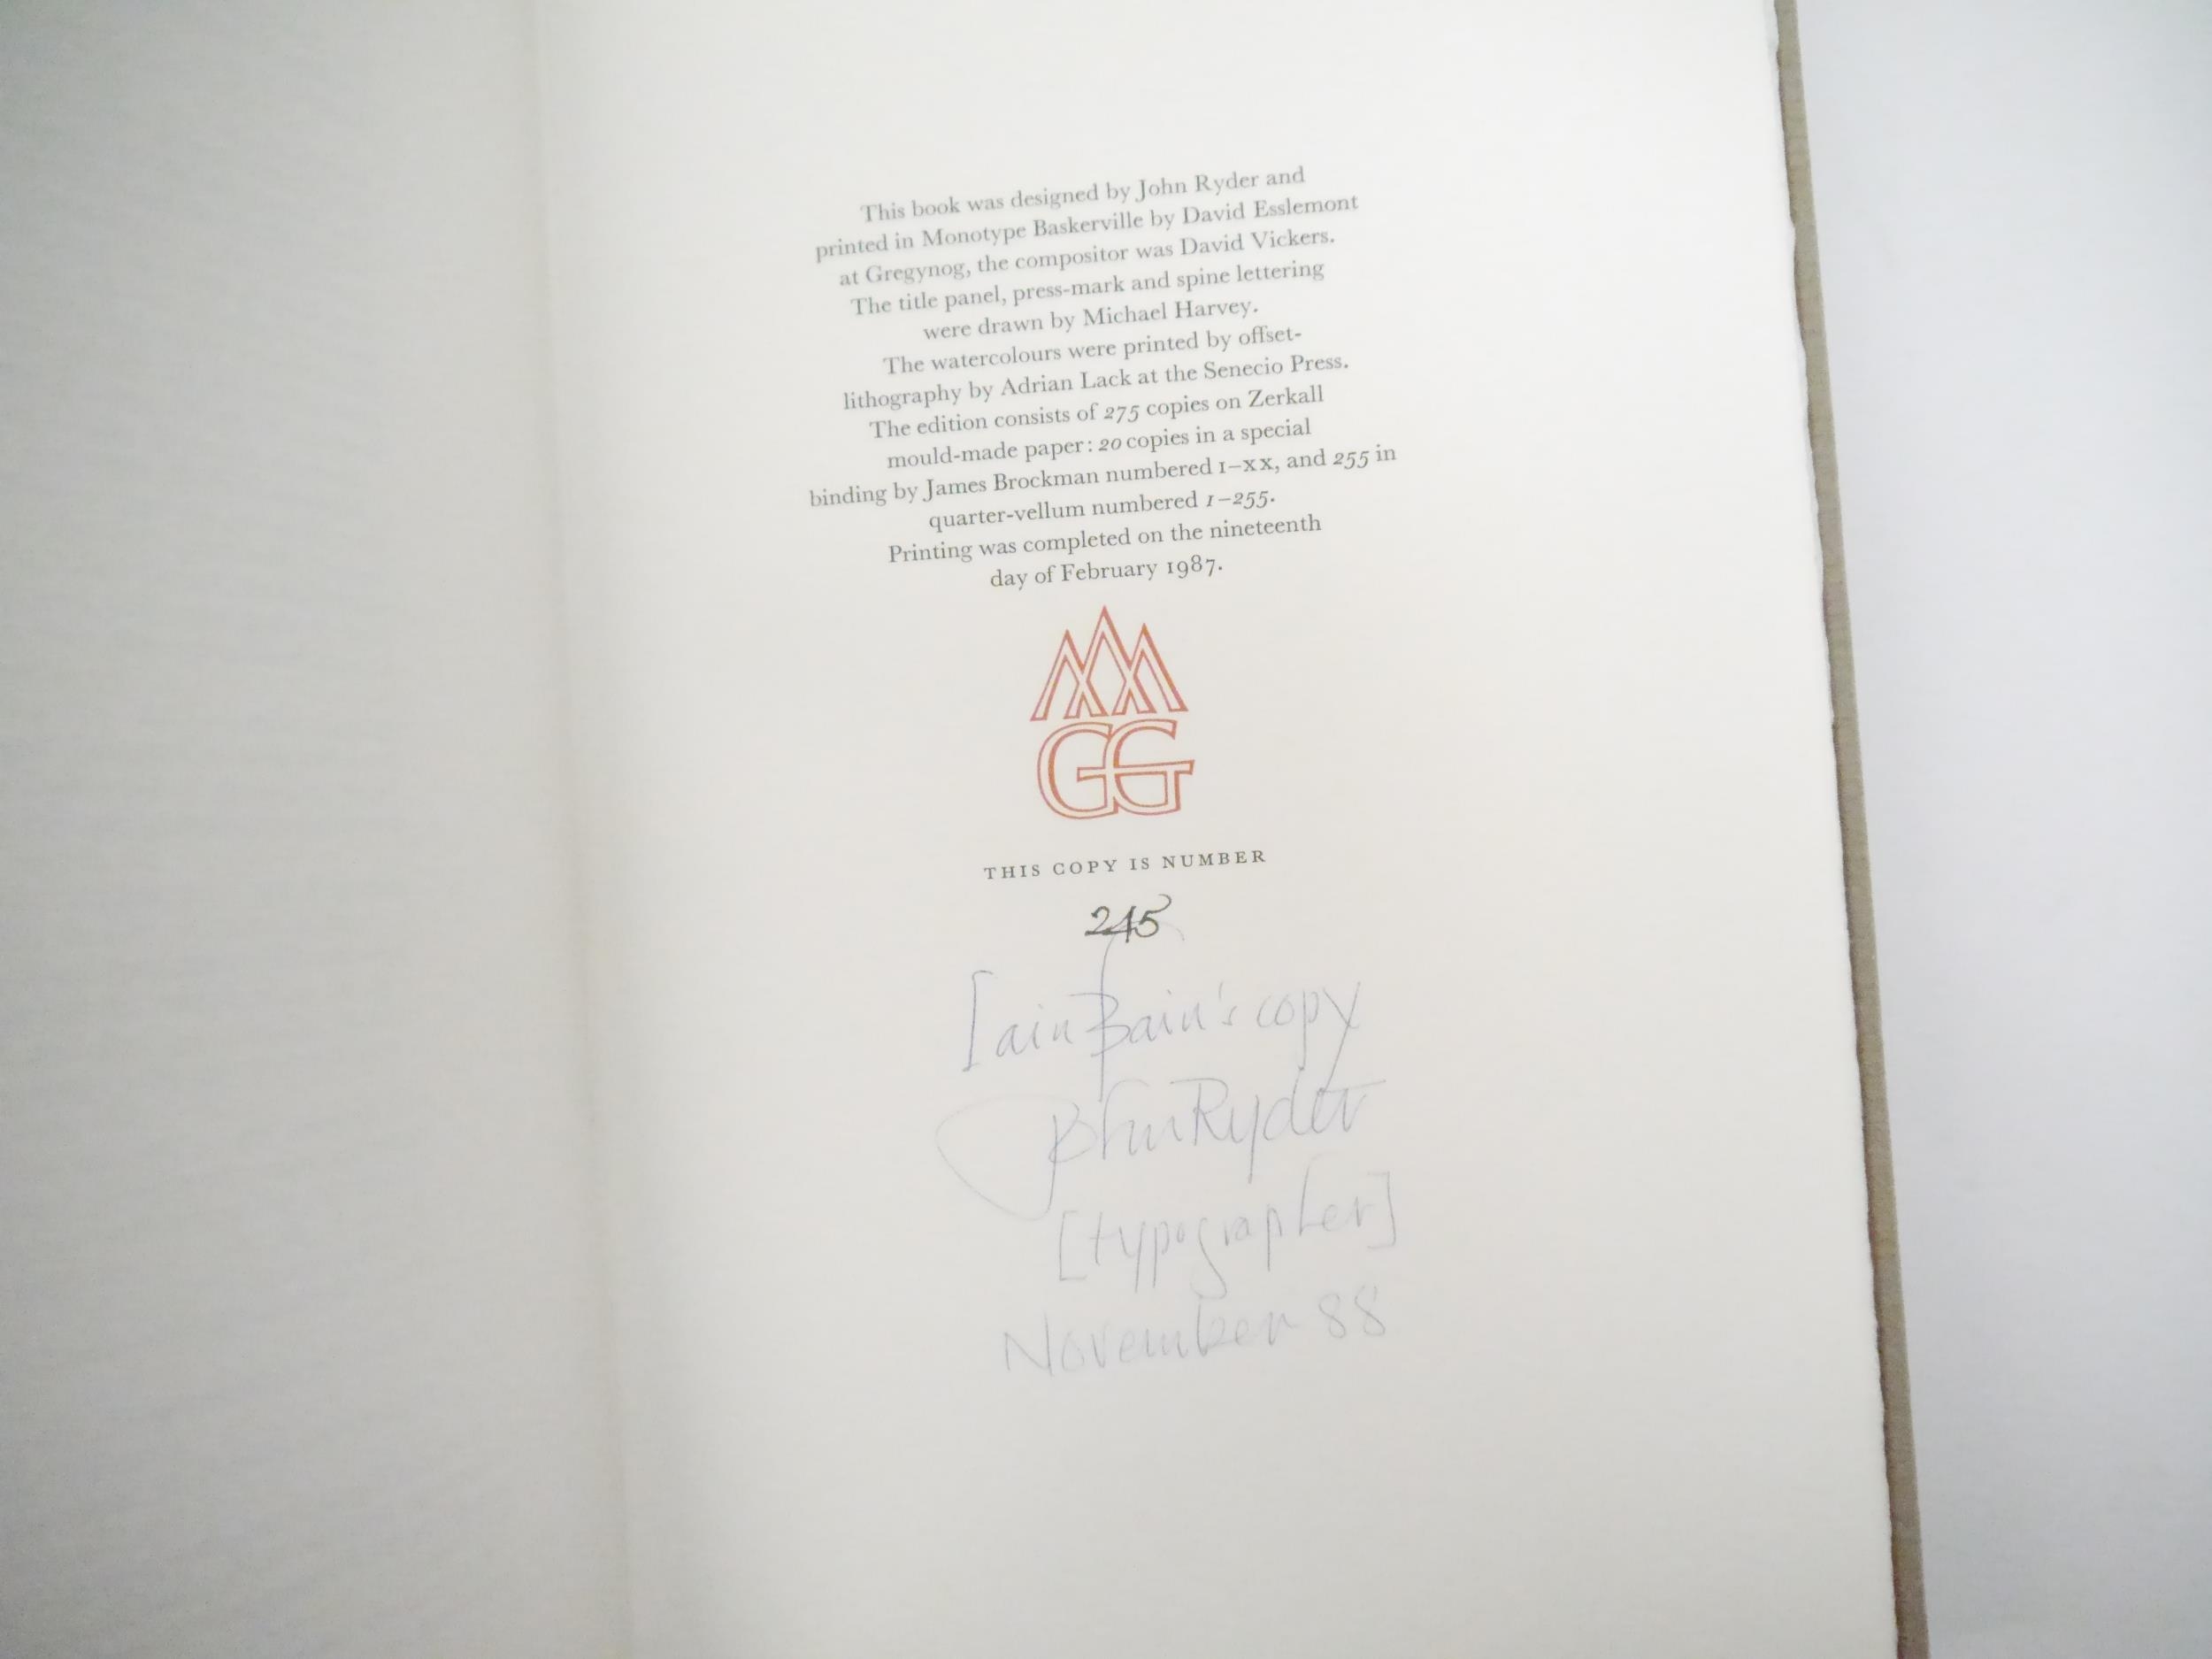 This book was designed by John Ryder and
printed in Monotype Baskerville by David Esslemont
at Gregynog, the compositor was David Vickers.
The title panel, press-mark and spine lettering
were drawn by Michael Harvey.
The watercolours were printed by offset-
lithography by Adrian Lack at the Senecio Press.
The edition consists of 275 copies on Zerkall
mould-made paper: 20 copies in a special
binding by James Brockman numbered I–XX, and 255 in
quarter-vellum numbered 1–255.
Printing was completed on the nineteenth
day of February 1987.
GG
THIS COPY IS NUMBER
245
Iain Bain's copy
John Ryder
[typographer]
November 88